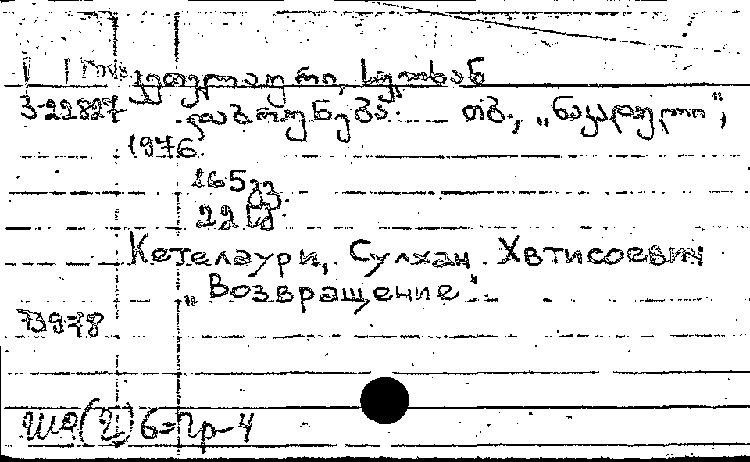 ქეთელაური, სულხან
3-22827 დაბრუნება. თბ., „ნაკადული“,
1976.
165 გვ.
22 სმ.
Кетелаури, Сулхан Хвтисоевич
„Возвращение“.
73978
Ша(2) 6=Гр-4